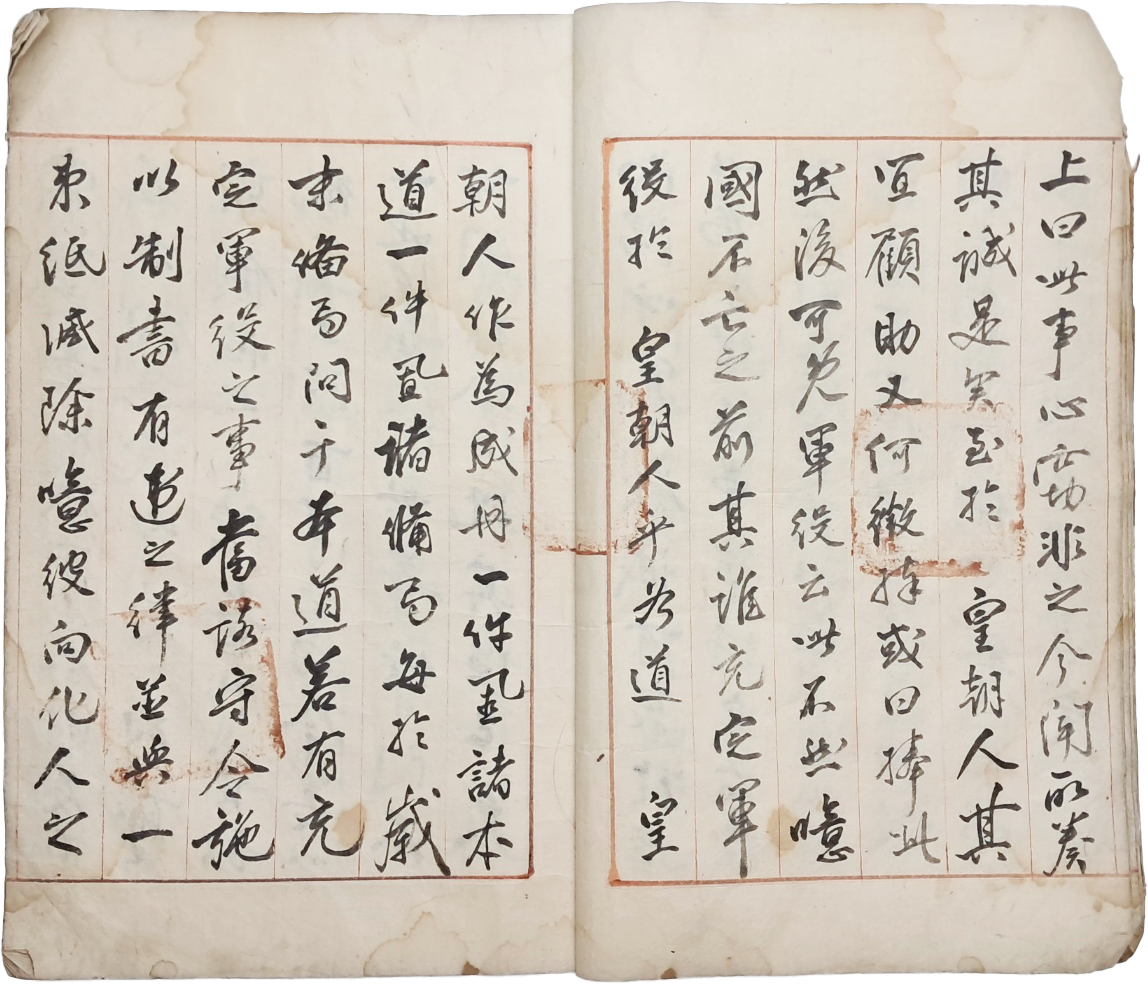 上曰此事心窃非之今聞所奏
其誠是矣至於 皇朝人其
宜顧助又何徵捧或曰捧此
然後可免軍役云此不然噫
國不亡之前其誰充定軍
役於 皇朝人乎各道 皇
朝人作爲成冊一件置諸本
道一件置諸備局每於歲
末備局問于本道若有充
定軍役之事當該守令施
以制書有違之律並與一
束紙減除噫彼向化人之